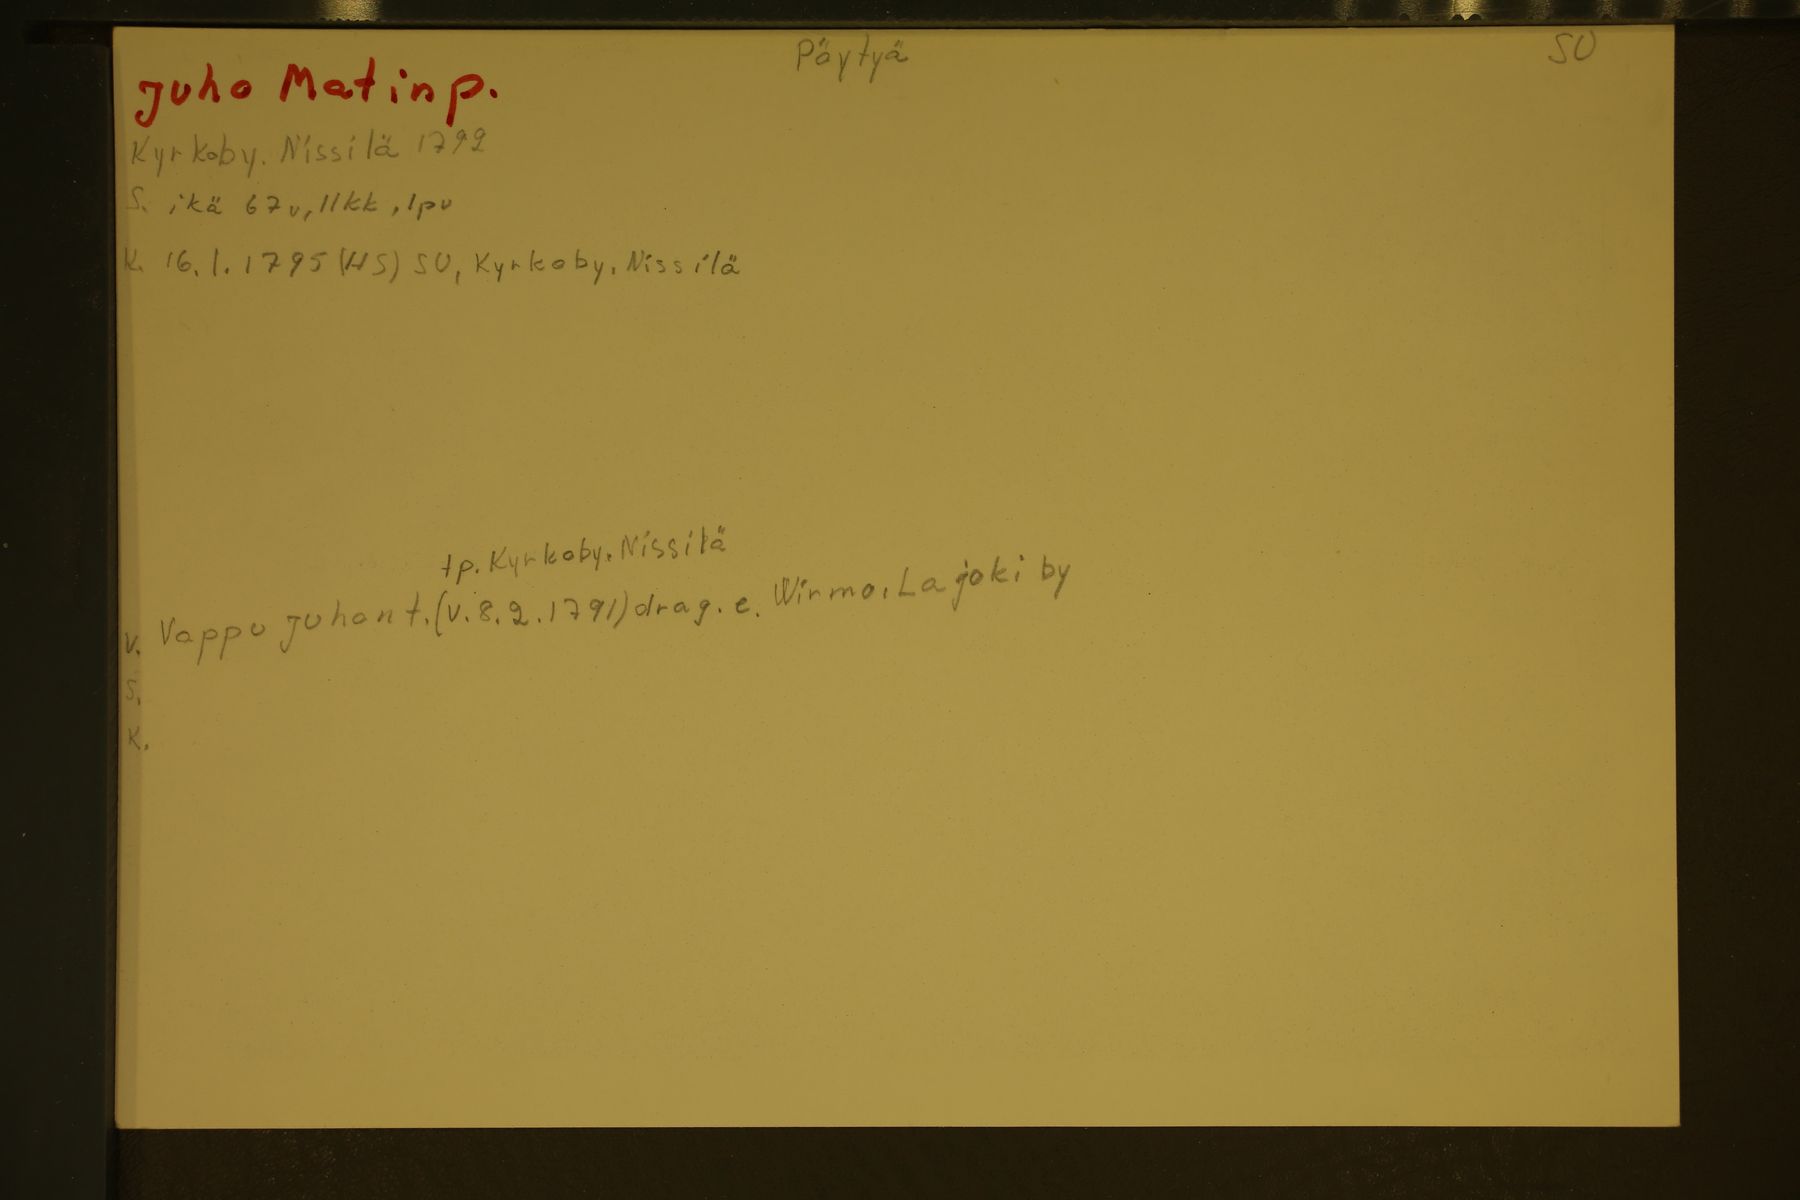 Pöytyä
SU
Juho Matinp.
Kyrkoby. Nissilä 1792
S. ikä 67v, 11kk, 1pv
K. 16.1.1795 (HS) SU, Kyrkoby. Nissilä
tp. Kyrkoby. Nissilä
V. Vappu Juhant. (V. 8.2.1791) drag. e. Wirmo. Lajoki by
S.
K.